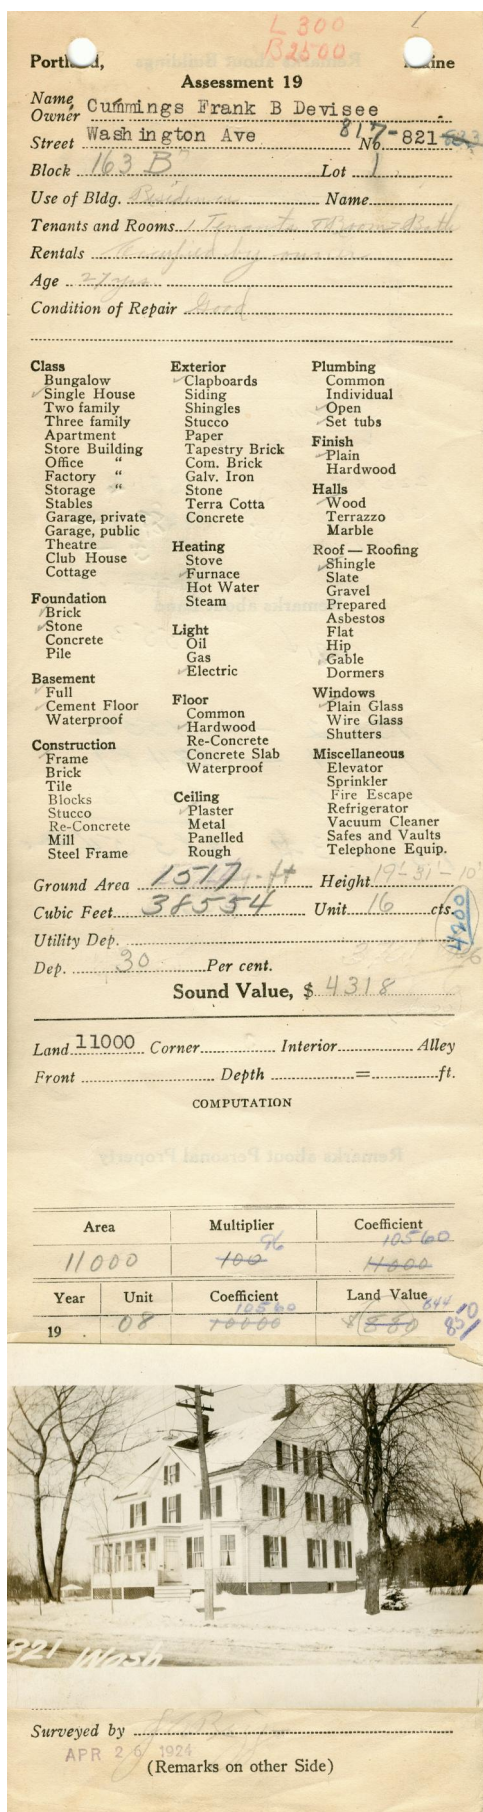 L 300
B 2500
Portland, Maine
Assessment 19
Name Owner Cummings Frank B Devisee
Street Washington Ave 817- No 821-823
Block 163 B Lot 1
Use of Bldg. Residence Name
Tenants and Rooms 1 Tenants 8 Rooms Bath
Rentals Occupied by owner
Age 27 yrs
Condition of Repair Good
Class
Bungalow
Single House
Two family
Three family
Apartment
Store Building
Office "
Factory "
Storage "
Stables
Garage, private
Garage, public
Theatre
Club House
Cottage
Foundation
Brick
Stone
Concrete
Pile
Basement
Full
Cement Floor
Waterproof
Construction
Frame
Brick
Tile
Blocks
Stucco
Re-Concrete
Mill
Steel Frame
Exterior
Clapboards
Siding
Shingles
Stucco
Paper
Tapestry Brick
Com. Brick
Galv. Iron
Stone
Terra Cotta
Concrete
Heating
Stove
Furnace
Hot Water
Steam
Light
Oil
Gas
Electric
Floor
Common
Hardwood
Re-Concrete
Concrete Slab
Waterproof
Ceiling
Plaster
Metal
Panelled
Rough
Plumbing
Common
Individual
Open
Set tubs
Finish
Plain
Hardwood
Halls
Wood
Terrazzo
Marble
Roof — Roofing
Shingle
Slate
Gravel
Prepared
Asbestos
Flat
Hip
Gable
Dormers
Windows
Plain Glass
Wire Glass
Shutters
Miscellaneous
Elevator
Sprinkler
Fire Escape
Refrigerator
Vacuum Cleaner
Safes and Vaults
Telephone Equip.
Ground Area 1517 sq. ft Height 19'-31'-10'
Cubic Feet 38554 Unit 16 cts.
4200
Utility Dep.
Dep. 30 Per cent.
Sound Value, $ 4318
Land 11000 Corner Interior Alley
Front Depth = ft.
COMPUTATION
Area Multiplier Coefficient
96 10560
11000 100 11000
Year Unit Coefficient Land Value
10560 844
19 08 10000 $ 880
821 Wash
Surveyed by
APR 26 1924
(Remarks on other Side)